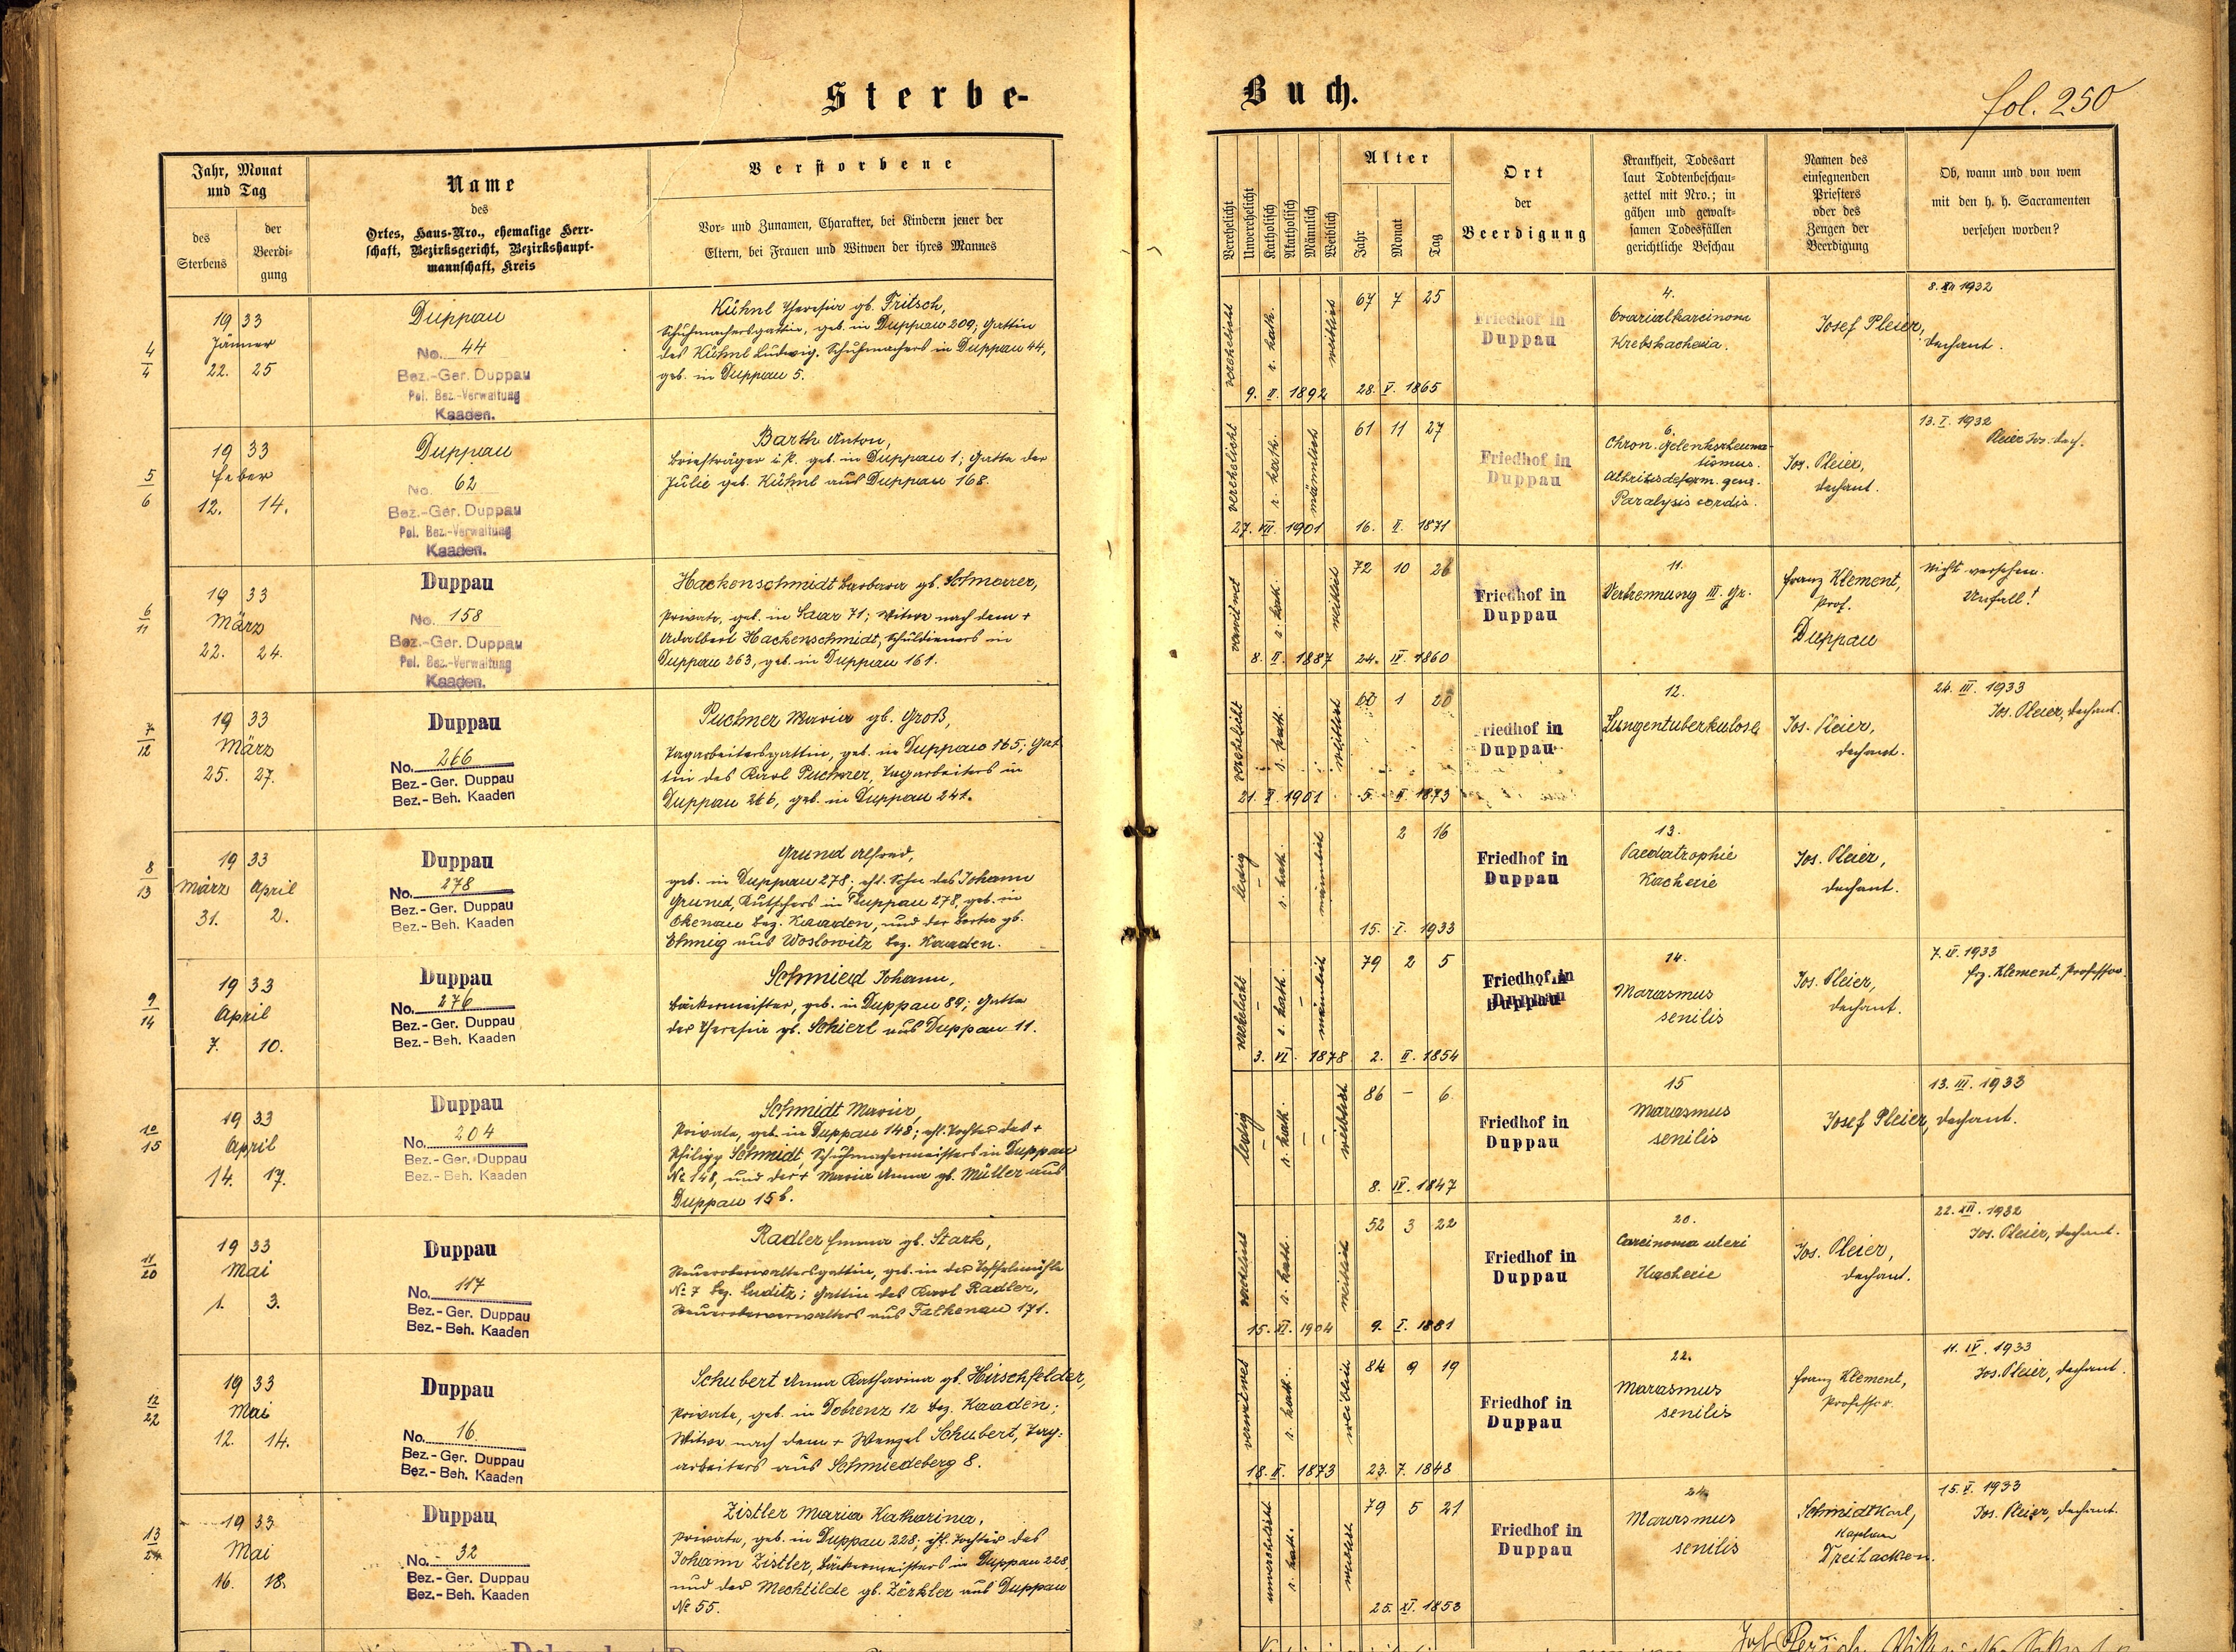 Sterbe-
Buch.
fol. 250
Jahr, Monat
und Tag
des
Sterbens
der
Beerdi-
gung
Name
des
Ortes, Haus-Nro., ehemalige Herr-
schaft, Bezirksgericht, Bezirkshaupt-
mannschaft, Kreis
Verstorbene
Vor- und Zunamen, Charakter, bei Kindern jener der
Eltern, bei Frauen und Witwen der ihres Mannes
Verehelicht
Unverehelicht
Katholisch
Akatholisch
Männlich
Weiblich
Alter
Jahr
Monat
Tag
Ort
der
Beerdigung
Krankheit, Todesart
laut Todtenbeschau-
zettel mit Nro.; in
gähen und gewalt-
samen Todesfällen
gerichtliche Beschau
Namen des
einsegnenden
Priesters
oder des
Zeugen der
Beerdigung
Ob, wann und von wem
mit den h. h. Sacramenten
versehen worden?
4
4
1933
Jänner
22. 25
Duppau
No. 44
Bez.-Ger. Duppau
Pol. Bez.-Verwaltung
Kaaden.
Kühnl Theresia gb. Fritsch,
Schuhmachersgattin, geb. in Duppau 209; Gattin
des Kühnl Ludwig, Schuhmachers in Duppau 44,
geb. in Duppau 5.
verehelicht
r. kath.
weiblich
67 7 25
9. II. 1892
28. V. 1865
Friedhof in
Duppau
4.
Ovarialkarcinom
Krebskachexia.
Josef Pleier,
Dechant.
8. XII 1932
5
6
1933
Feber
12. 14.
Duppau
No. 62
Bez.-Ger. Duppau
Pol. Bez.-Verwaltung
Kaaden.
Barth Anton,
Briefträger i. R. geb. in Duppau 1; Gatte der
Julie geb. Kühnl aus Duppau 168.
verehelicht
r. kath.
männlich
61 11 27
27. VII. 1901
16. II. 1871
Friedhof in
Duppau
6.
Chron. Gelenksrheuma-
tismus.
Athritis deform. genu.
Paralysis cordis.
Jos. Pleier,
Dechant.
13. I. 1932
Pleier Jos. Dech.
6
11
1933
März
22. 24.
Duppau
No. 158
Bez.-Ger. Duppau
Pol. Bez.-Verwaltung
Kaaden.
Hackenschmidt Barbara gb. Schmorrer,
Private, geb. in Saar 71; Witwe nach dem +
Adalbert Hackenschmidt, Schuldieners in
Duppau 263, geb. in Duppau 161.
verwitwet
r. kath.
weiblich
72 10 26
8. II. 1887
24. IV. 1860
Friedhof in
Duppau
11.
Verbrennung III. Gr.
Franz Klement,
Prof.
Duppau
Nicht versehen.
Unfall!
7
12
1933
März
25. 27.
Duppau
No. 266
Bez.-Ger. Duppau
Bez.-Beh. Kaaden
Puchner Maria gb. Groß,
Tagarbeitersgattin, geb. in Duppau 165; Gat
tin des Karl Puchner, Tagarbeiters in
Duppau 266, geb. in Duppau 241.
verehelicht
r. kath.
weiblich
60 1 20
21. II. 1901
5. II. 1873
Friedhof in
Duppau
12.
Lungentuberkulose
Jos. Pleier,
Dechant.
24. III. 1933
Jos. Pleier, Dechant.
8
13
1933
März April
31. 2.
Duppau
No. 278
Bez.-Ger. Duppau
Bez.-Beh. Kaaden
Grund Alfred,
geb. in Duppau 278; ehl. Sohn des Johann
Grund, Kutschers in Duppau 278, geb. in
Okenau Bez. Kaaden, und der Berta gb.
Ehmig aus Woslowitz Bez. Kaaden.
ledig
r. kath.
männlich
2 16
15. I. 1933
Friedhof in
Duppau
13.
Paedatrophie
Kachexie
Jos. Pleier,
Dechant.
9
14
1933
April
7. 10.
Duppau
No. 276
Bez.-Ger. Duppau
Bez.-Beh. Kaaden
Schmied Johann,
Bäckermeister, geb. in Duppau 89; Gatte
der Theresia gb. Schierl aus Duppau 11.
verehelicht
r. kath.
männlich
79 2 5
3. VI. 1878
2. II. 1854
Friedhof in
Duppau
14.
Marasmus
senilis
Jos. Pleier,
Dechant.
7. IV. 1933
Frz. Klement, Professor.
10
15
1933
April
14. 17.
Duppau
No. 204
Bez.-Ger. Duppau
Bez.-Beh. Kaaden
Schmidt Maria,
Private, geb. in Duppau 148; ehl. Tochter des +
Philipp Schmidt, Schuhmachermeisters in Duppau
No 148, und der + Maria Anna gb. Müller aus
Duppau 156.
ledig
r. kath.
weiblich
86 – 6
8. IV. 1847
Friedhof in
Duppau
15
Marasmus
senilis
Josef Pleier, Dechant.
13. III. 1933
11
20
1933
Mai
1. 3.
Duppau
No. 117
Bez.-Ger. Duppau
Bez.-Beh. Kaaden
Radler Emma gb. Stark,
Steueroberverwaltersgattin, geb. in der
No 7 Bez. Luditz; Gattin des Karl Radler,
Steueroberverwalters aus Falkenau 171.
r. kath.
weiblich
52 3 22
15. XI. 1904
9. I. 1881
Friedhof in
Duppau
20.
Carcinoma uteri
Kachexie
Jos. Pleier,
Dechant.
22. XII. 1932
Jos. Pleier, Dechant.
12
22
1933
Mai
12. 14.
Duppau
No. 16.
Bez.-Ger. Duppau
Bez.-Beh. Kaaden
Schubert Anna Katharina gb. Hirschfelder,
Private, geb. in Dobrenz 12 Bez. Kaaden;
Witwe nach dem + Wenzel Schubert, Tag-
arbeiters aus Schmiedeberg 8.
verwitwet
r. kath.
weiblich
84 9 19
18. II. 1873
23. 7. 1848
Friedhof in
Duppau
22.
Marasmus
senilis
Franz Klement,
Professor.
11. IV. 1933
Jos. Pleier, Dechant.
13
24
1933
Mai
16. 18.
Duppau
No. 32
Bez.-Ger. Duppau
Bez.-Beh. Kaaden
Zistler Maria Katharina,
Private, geb. in Duppau 228; ehl. Tochter des
Johann Zistler, Bäckermeisters in Duppau 228,
und der Mechtilde gb. Zörkler aus Duppau
No 55.
unverehelicht
r. kath.
weiblich
79 5 21
25. XI. 1853
Friedhof in
Duppau
24.
Marasmus
senilis
Schmidt Karl,
Kaplan
Dreihacken.
15. V. 1933
Jos. Pleier, Dechant.